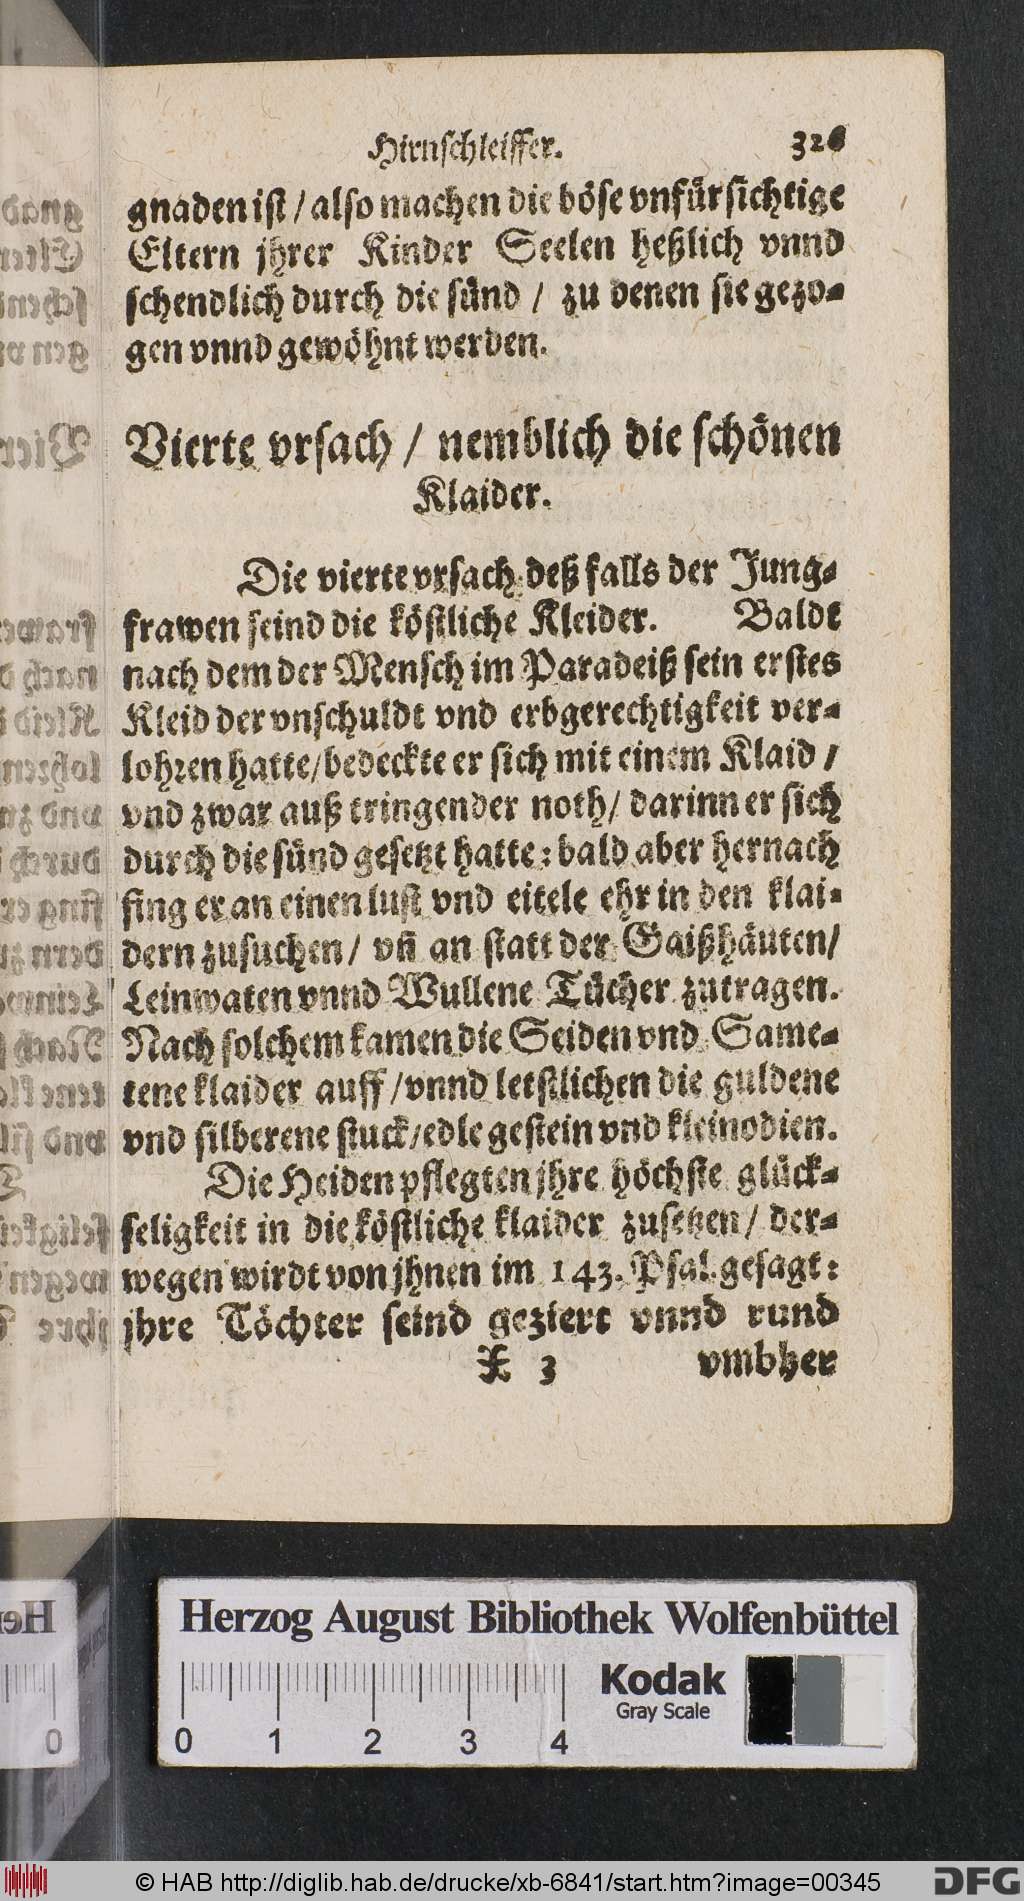 Hirnschleiffer. 326
gnaden ist / also machen die böse vnfürsichtige
Eltern jhrer Kinder Seelen heßlich vnnd
schendlich durch die sünd / zu denen sie gezo-
gen vnnd gewöhnt werden.
Vierte vrsach / nemblich die schönen
Klaider.
Die vierte vrsach deß falls der Jung-
frawen seind die köstliche Kleider. Baldt
nach dem der Mensch im Paradeiß sein erstes
Kleid der vnschuldt vnd erbgerechtigkeit ver-
lohren hatte/bedeckte er sich mit einem Klaid /
vnd zwar auß tringender noth/ darinn er sich
durch die sünd gesetzt hatte: bald aber hernach
fing er an einen lust vnd eitele ehr in den klai-
dern zusuchen/ vñ an statt der Gaißhäuten/
Leinwaten vnnd Wullene Tücher zutragen.
Nach solchem kamen die Seiden vnd Same-
tene klaider auff /vnnd letstlichen die guldene
vnd silberene stuck/edle gestein vnd kleinodien.
Die Heiden pflegten jhre höchste glück-
seligkeit in die köstliche klaider zusetzen/ der-
wegen wirdt von jhnen im 143. Psal. gesagt:
jhre Töchter seind geziert vnnd rund
X 3 vmbher
Herzog August Bibliothek Wolfenbüttel
Kodak
Gray Scale
0 1 2 3 4
© HAB http://diglib.hab.de/drucke/xb-6841/start.htm?image=00345
DFG